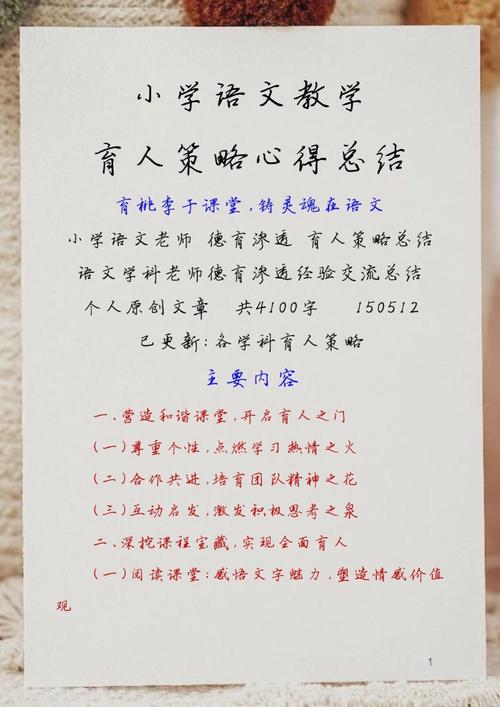 小学语文教学
育人策略心得总结
育桃李于课堂,铸灵魂在语文
小学语文老师 德育渗透 育人策略总结
语文学科老师德育渗透经验交流总结
个人原创文章 共4100字 150512
已更新:各学科育人策略
主要内容
一、营造和谐课堂,开启育人之门
(一)尊重个性,点燃学习热情之火
(二)合作共进,培育团队精神之花
(三)互动启发,激发积极思考之泉
二、深挖课程宝藏,实现全面育人
(一)阅读课堂:感悟文字魅力,塑造情感价值
观
1